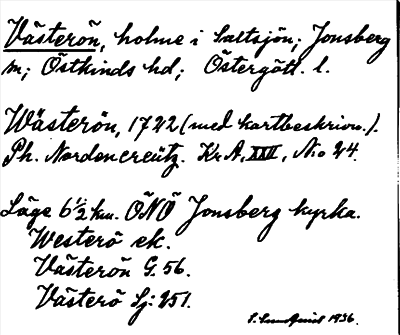 Västerön, holme i Saltsjön; Jonsberg
sn; Östkinds hd; Östergötl. l.
Wästerön, 1722 (med kartbeskrivn.).
Ph. Nordencreütz. Kr. A, XXII, N:o 24.
Läge 6 1/2 km. ÖNÖ Jonsberg kyrka.
Westerö ek.
Västerön G. 56.
Västerö Sj: 251.
S. Lundquist 1936.